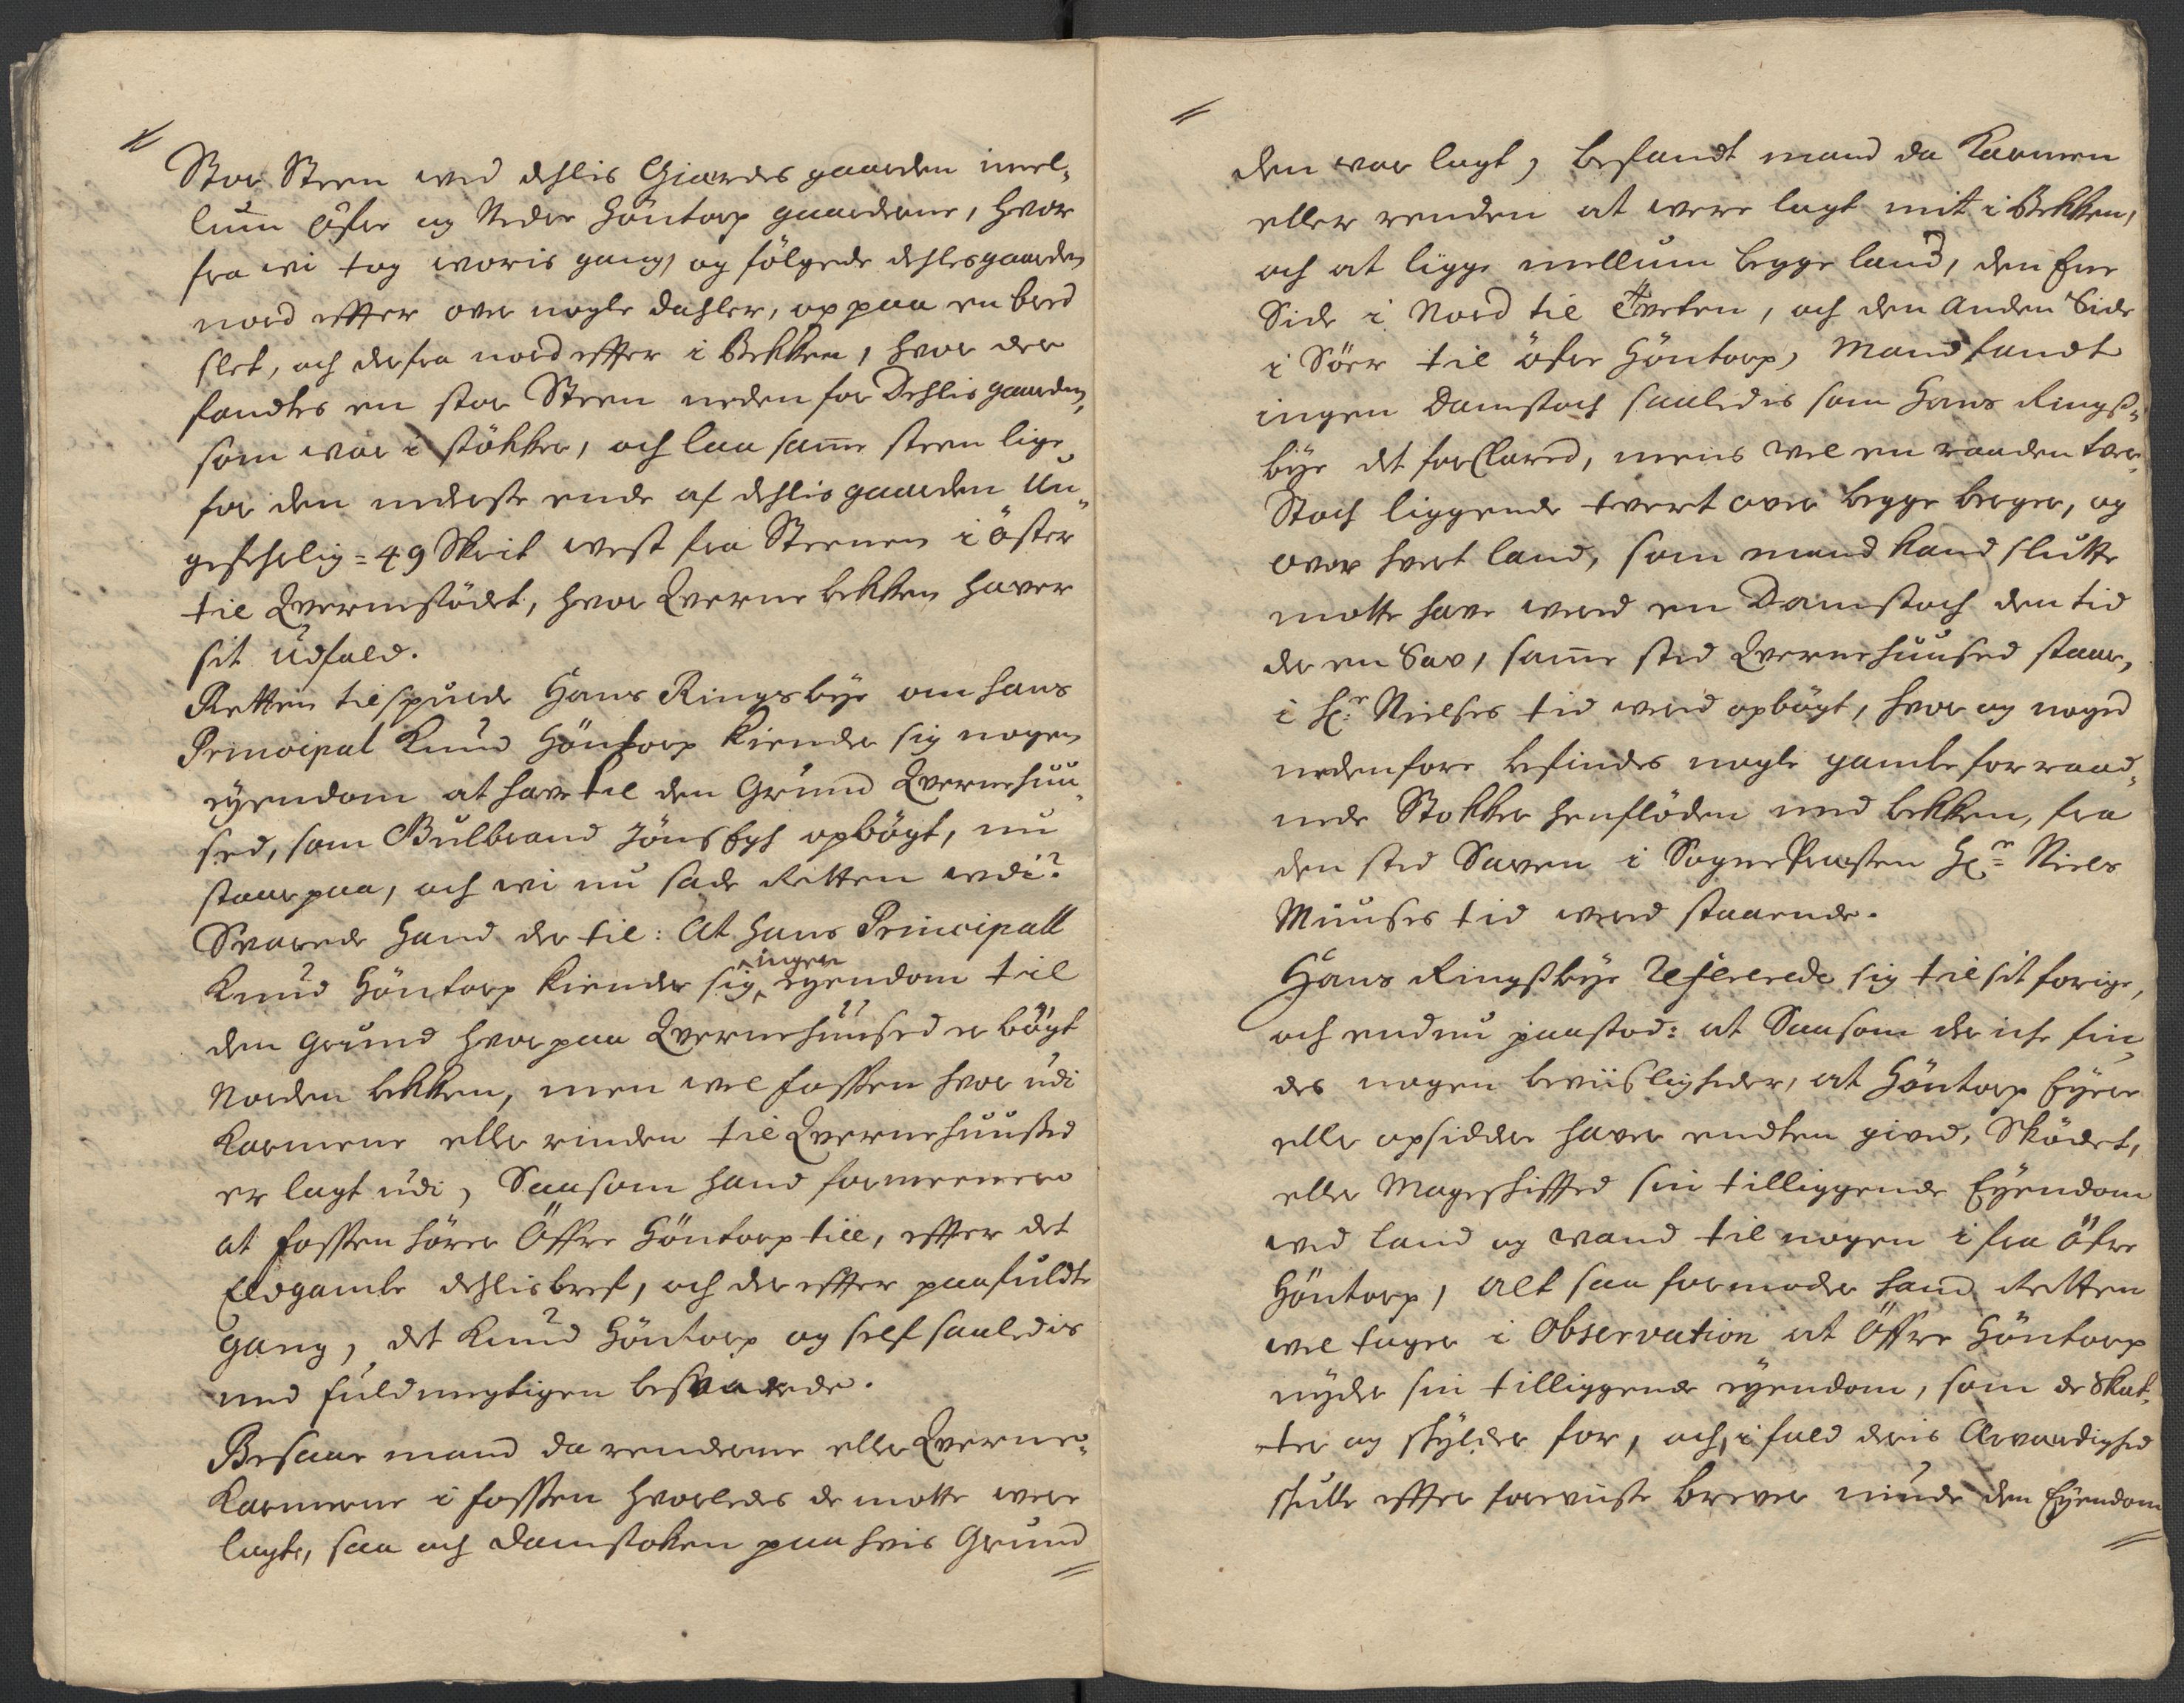 Stor Steen wed dehlis Giærdes gaarden imel-
lum öfre og Nedre Höntorp gaarderne, hvor
fra wi tog woris gang, og fölgede dehlesgaarden
nord effter over nogle dahler, op paa en bred
slet, och derfra nord effter i Bekken, hvor der
fandtes en stor Steen neden for Dehlis gaarden,
som war i stökker, och laa samme steen lige
for den nederste ende af dehlis gaarden Un-
gefehrlig = 49 Skrit west fra Steenen i öster
til Qvernstödet, hvor Qverne bekken haver
sit udfald.
Retten tilspurde Hans Ringsbye om hans
Principal Knud Höntorp kiender sig nogen
eyendom at have til den Grund Qvernehuu-
sed, som Gulbrand Jöns Eych opbögt, nu
staar paa, och wi nu sade Retten wdi?
Svarede Hand der til: At Hans Principall
Knud Höntorp kiender sig ingen eyendom til
den Grund hvorpaa Qvernehuused er bögt
Norden bekken, men wel fossen hvor udi
Karmene eller rinden til Qvernehuused
er lagt udi, Saasom Hand formeener
at fossen hörer Öffre Höntorp till, effter det
Eldgamle dehlisbref, och der effter paafuldte
gang, det Knud Höntorp og self saaledis
med fuldmegtigen besvarede.
Besaae mand da renderne eller Qverne-
Karmerne i fossen hvorledes de motte were
lagte, saa och Damstoken paa hvis Grund
den war lagt, befandt mand da Karmen
eller renden at were lagt mit i Bekken,
och at ligge mellum begge land, den Ene
Side i Nord til Tveten, och den Anden Side
i Söer til öfre Höntorp, Mand fandt
ingen Damstoch saaledis som Hans Rings-
bye det forklared, meens vel en raaden tver
Stoch liggende tvert over begge berger, og
over hvert land, som mand kand slutte
motte have werid en Damstoch den tid
der en Sav, samme sted Qvernehuused staar,
i Hr: Nielses tid werid opbögt, hvor og noged
nedenfore befindes nogle gamle forraad-
nede Stokker henflöden med bekken, fra
den sted Saven i SognePræsten Hr: Niels
Muuses tid werid staaende.
Hans Ringsbye Refererede sig til sit forige,
och endnu paastod: at Saasom der iche fin-
des nogen beviisligheder, at Höntorp Eyere
eller opsidder haver endten gived, Sködet,
eller Mageskifted sin tilliggende Eyendom
wed land og wand til nogen i fra Öfre
Höntorp, alt saa formoder hand Retten
wel tager i Observation at Öffre Höntorp
nyder sin tilliggende eyendom, som de Skat-
ter og skylder for, och, i fald deris Ærværdighed
skulle effter foreviiste brever miinde den Eyendom